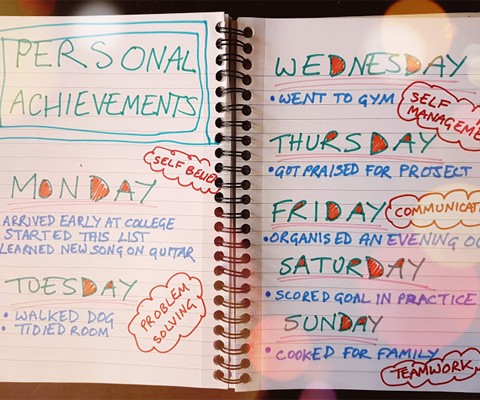 PERSONAL
ACHIEVEMENTS
SELF BELIEF
MONDAY
ARRIVED EARLY AT COLLEGE
STARTED THIS LIST
LEARNED NEW SONG ON GUITAR
TUESDAY
• WALKED DOG
• TIDIED ROOM
PROBLEM
SOLVING
WEDNESDAY
• WENT TO GYM
SELF
MANAGEME
THURSDAY
• GOT PRAISED FOR PROJECT
FRIDAY
COMMUNICAT
• ORGANISED AN EVENING OU
SATURDAY
• SCORED GOAL IN PRACTICE
SUNDAY
• COOKED FOR FAMILY
TEAMWORK